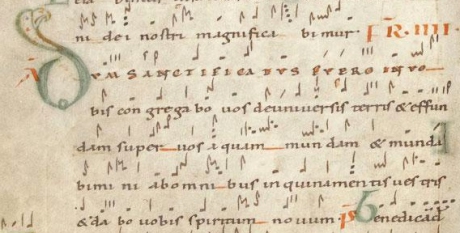 ni dei nostri magnifica bimur. FR. IIII
DVM SANCTIFICATVS FVERO IN VO
bis con grega bo uos deuniuersis terris & effun
dam super uos a quam mun dam & munda
bimi ni ab omni bus in quinamentis ues tris
& da bo uobis spiritum nouum. Ps Benedicā